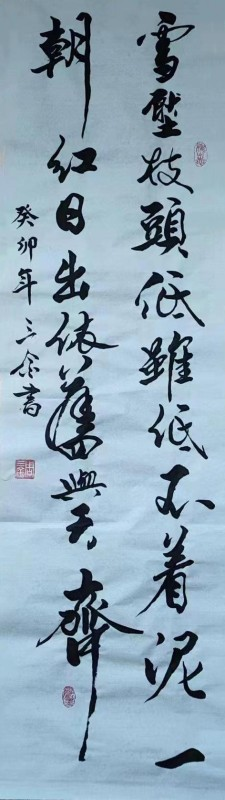 雪壓枝頭低雖低不着泥一
朝紅日出依舊與天齊
癸卯年三余書